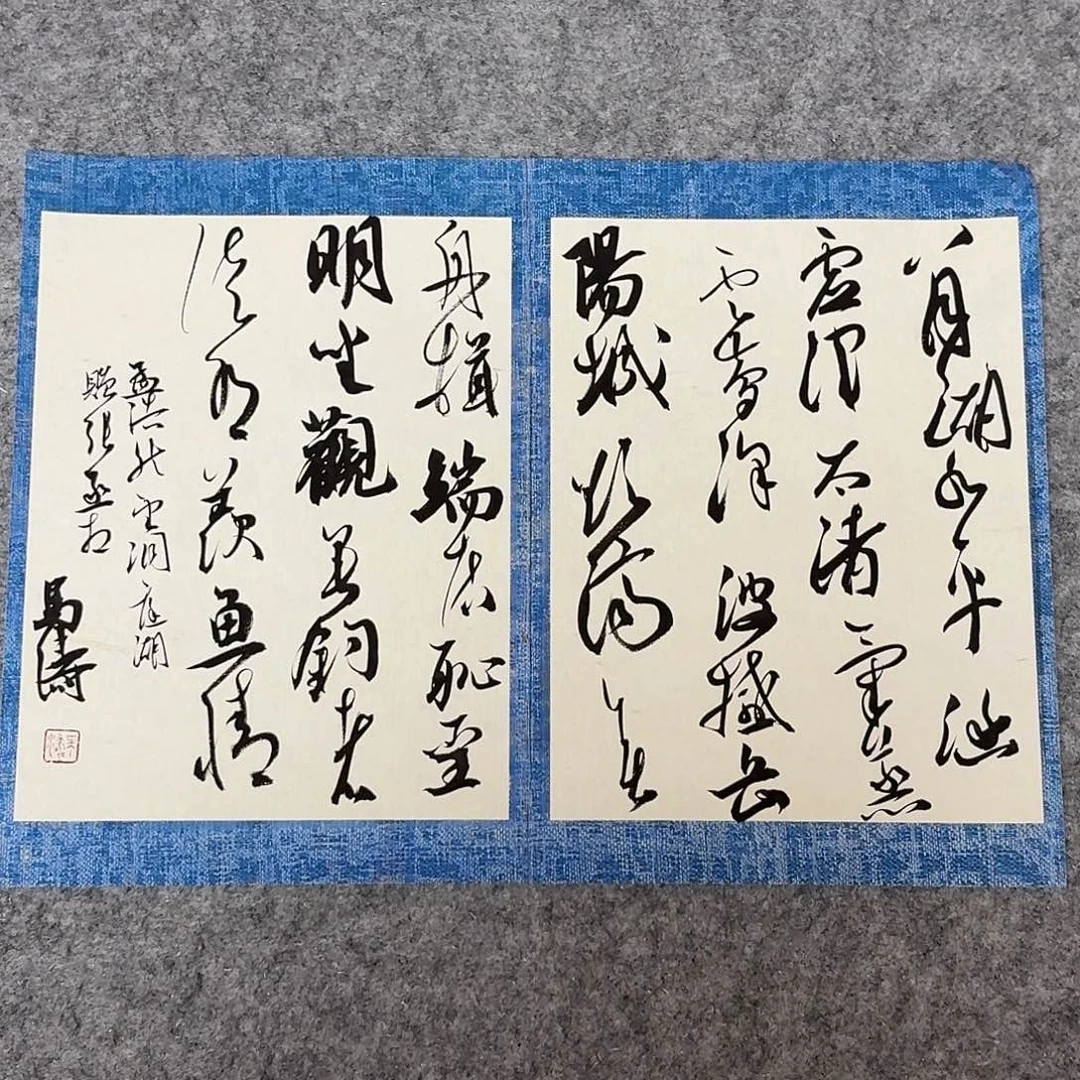 八月湖水平涵
虛混太清氣蒸
雲夢澤波撼岳
陽城欲濟無
舟楫端居恥聖
明坐觀垂釣者
徒有羨魚情
孟浩然望洞庭湖
贈張丞相